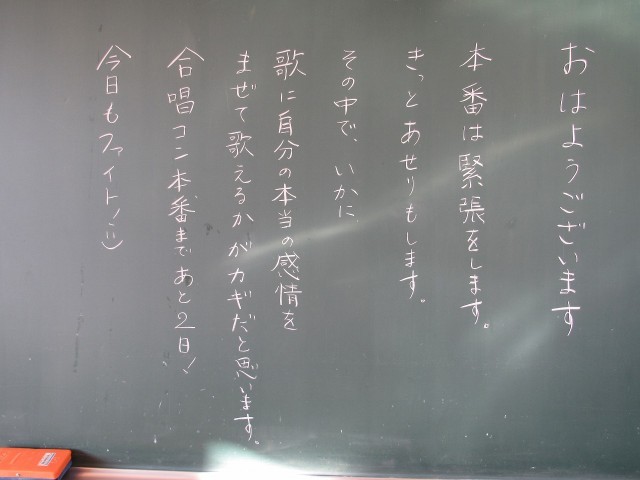 おはようございます
本番は緊張をします。
きっとあせりもします。
その中で、いかに
歌に自分の本当の感情を
まぜて歌えるかがカギだと思います。
合唱コン本番まであと2日!
今日もファイト!:)